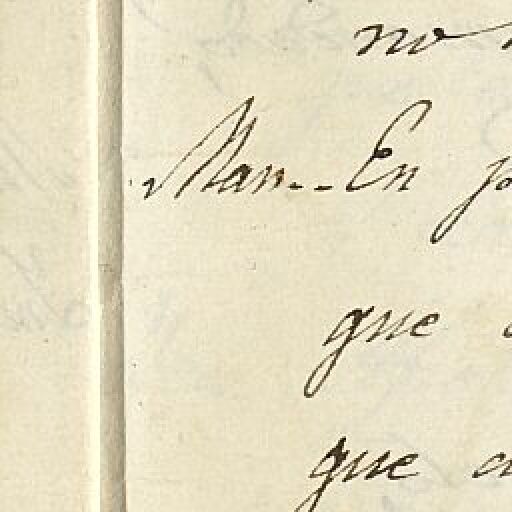 no
Man.. En
que
que